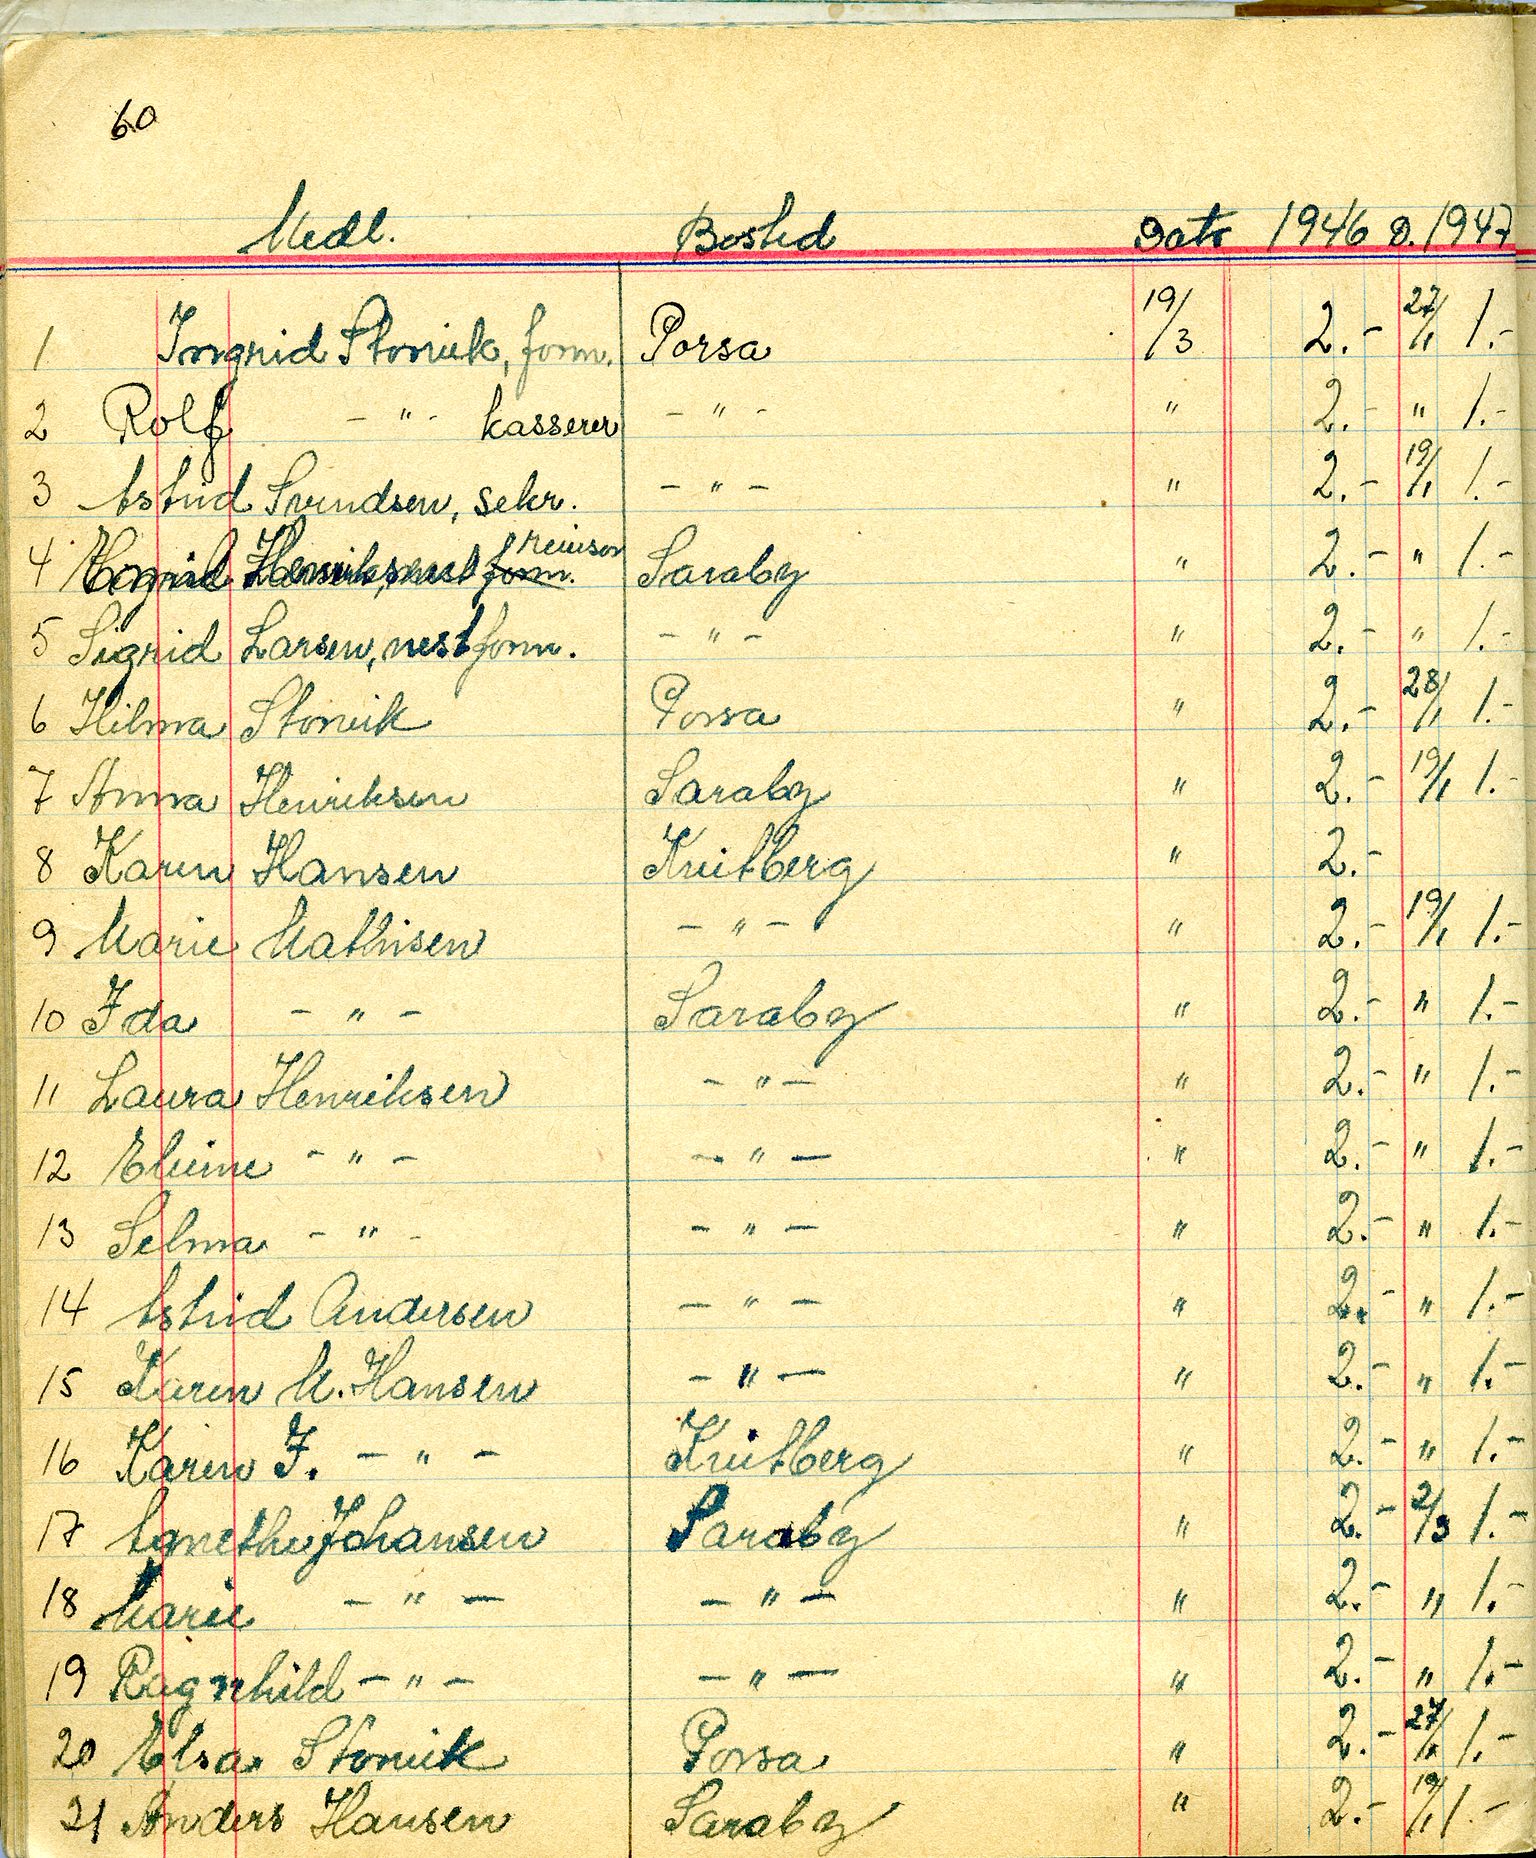 60
Medl. Bosted Dato 1946 D. 1947
1 Ingrid Storvik, form. Porsa 19/3 2.- 27/1 1.-
2 Rolf - " - kasserer - " - " 2.- " 1.-
3 Astrid Svendsen, sekr. - " - " 2.- 19/1 1.-
4 Henriksen revisor Saraby " 2.- " 1.-
5 Sigrid Larsen, nestform. - " - " 2.- " 1.-
6 Hilma Storvik Porsa " 2.- 28/1 1.-
7 Anna Henriksen Saraby " 2.- 19/1 1.-
8 Karen Hansen Kvitberg " 2.-
9 Marie Mathisen - " - " 2.- 19/1 1.-
10 Ida - " - Saraby " 2.- " 1.-
11 Laura Henriksen - " - " 2.- " 1.-
12 - " - - " - " 2.- " 1.-
13 Selma - " - - " - " 2.- " 1.-
14 Astrid Andersen - " - " 2.- " 1.-
15 Karen M. Hansen - " - " 2.- " 1.-
16 Karen J. - " - Kvitberg " 2.- " 1.-
17 Agnethe Johansen Saraby " 2.- 2/3 1.-
18 Marie - " - - " - " 2.- " 1.-
19 Ragnhild - " - - " - " 2.- " 1.-
20 Elsa Storvik Porsa " 2.- 27/1. 1.-
21 Anders Hansen Saraby " 2.- 19/1 1.-